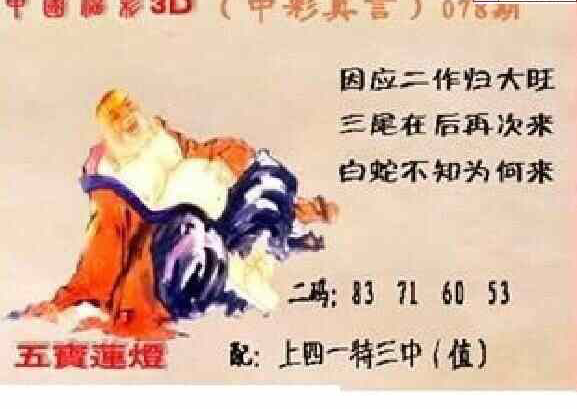 中國福彩3D（中彩真言）078期
因应二作归大旺
三尾在后再次来
白蛇不知为何来
二码: 83 71 60 53
五寶蓮燈
配: 上四一特三中(值)